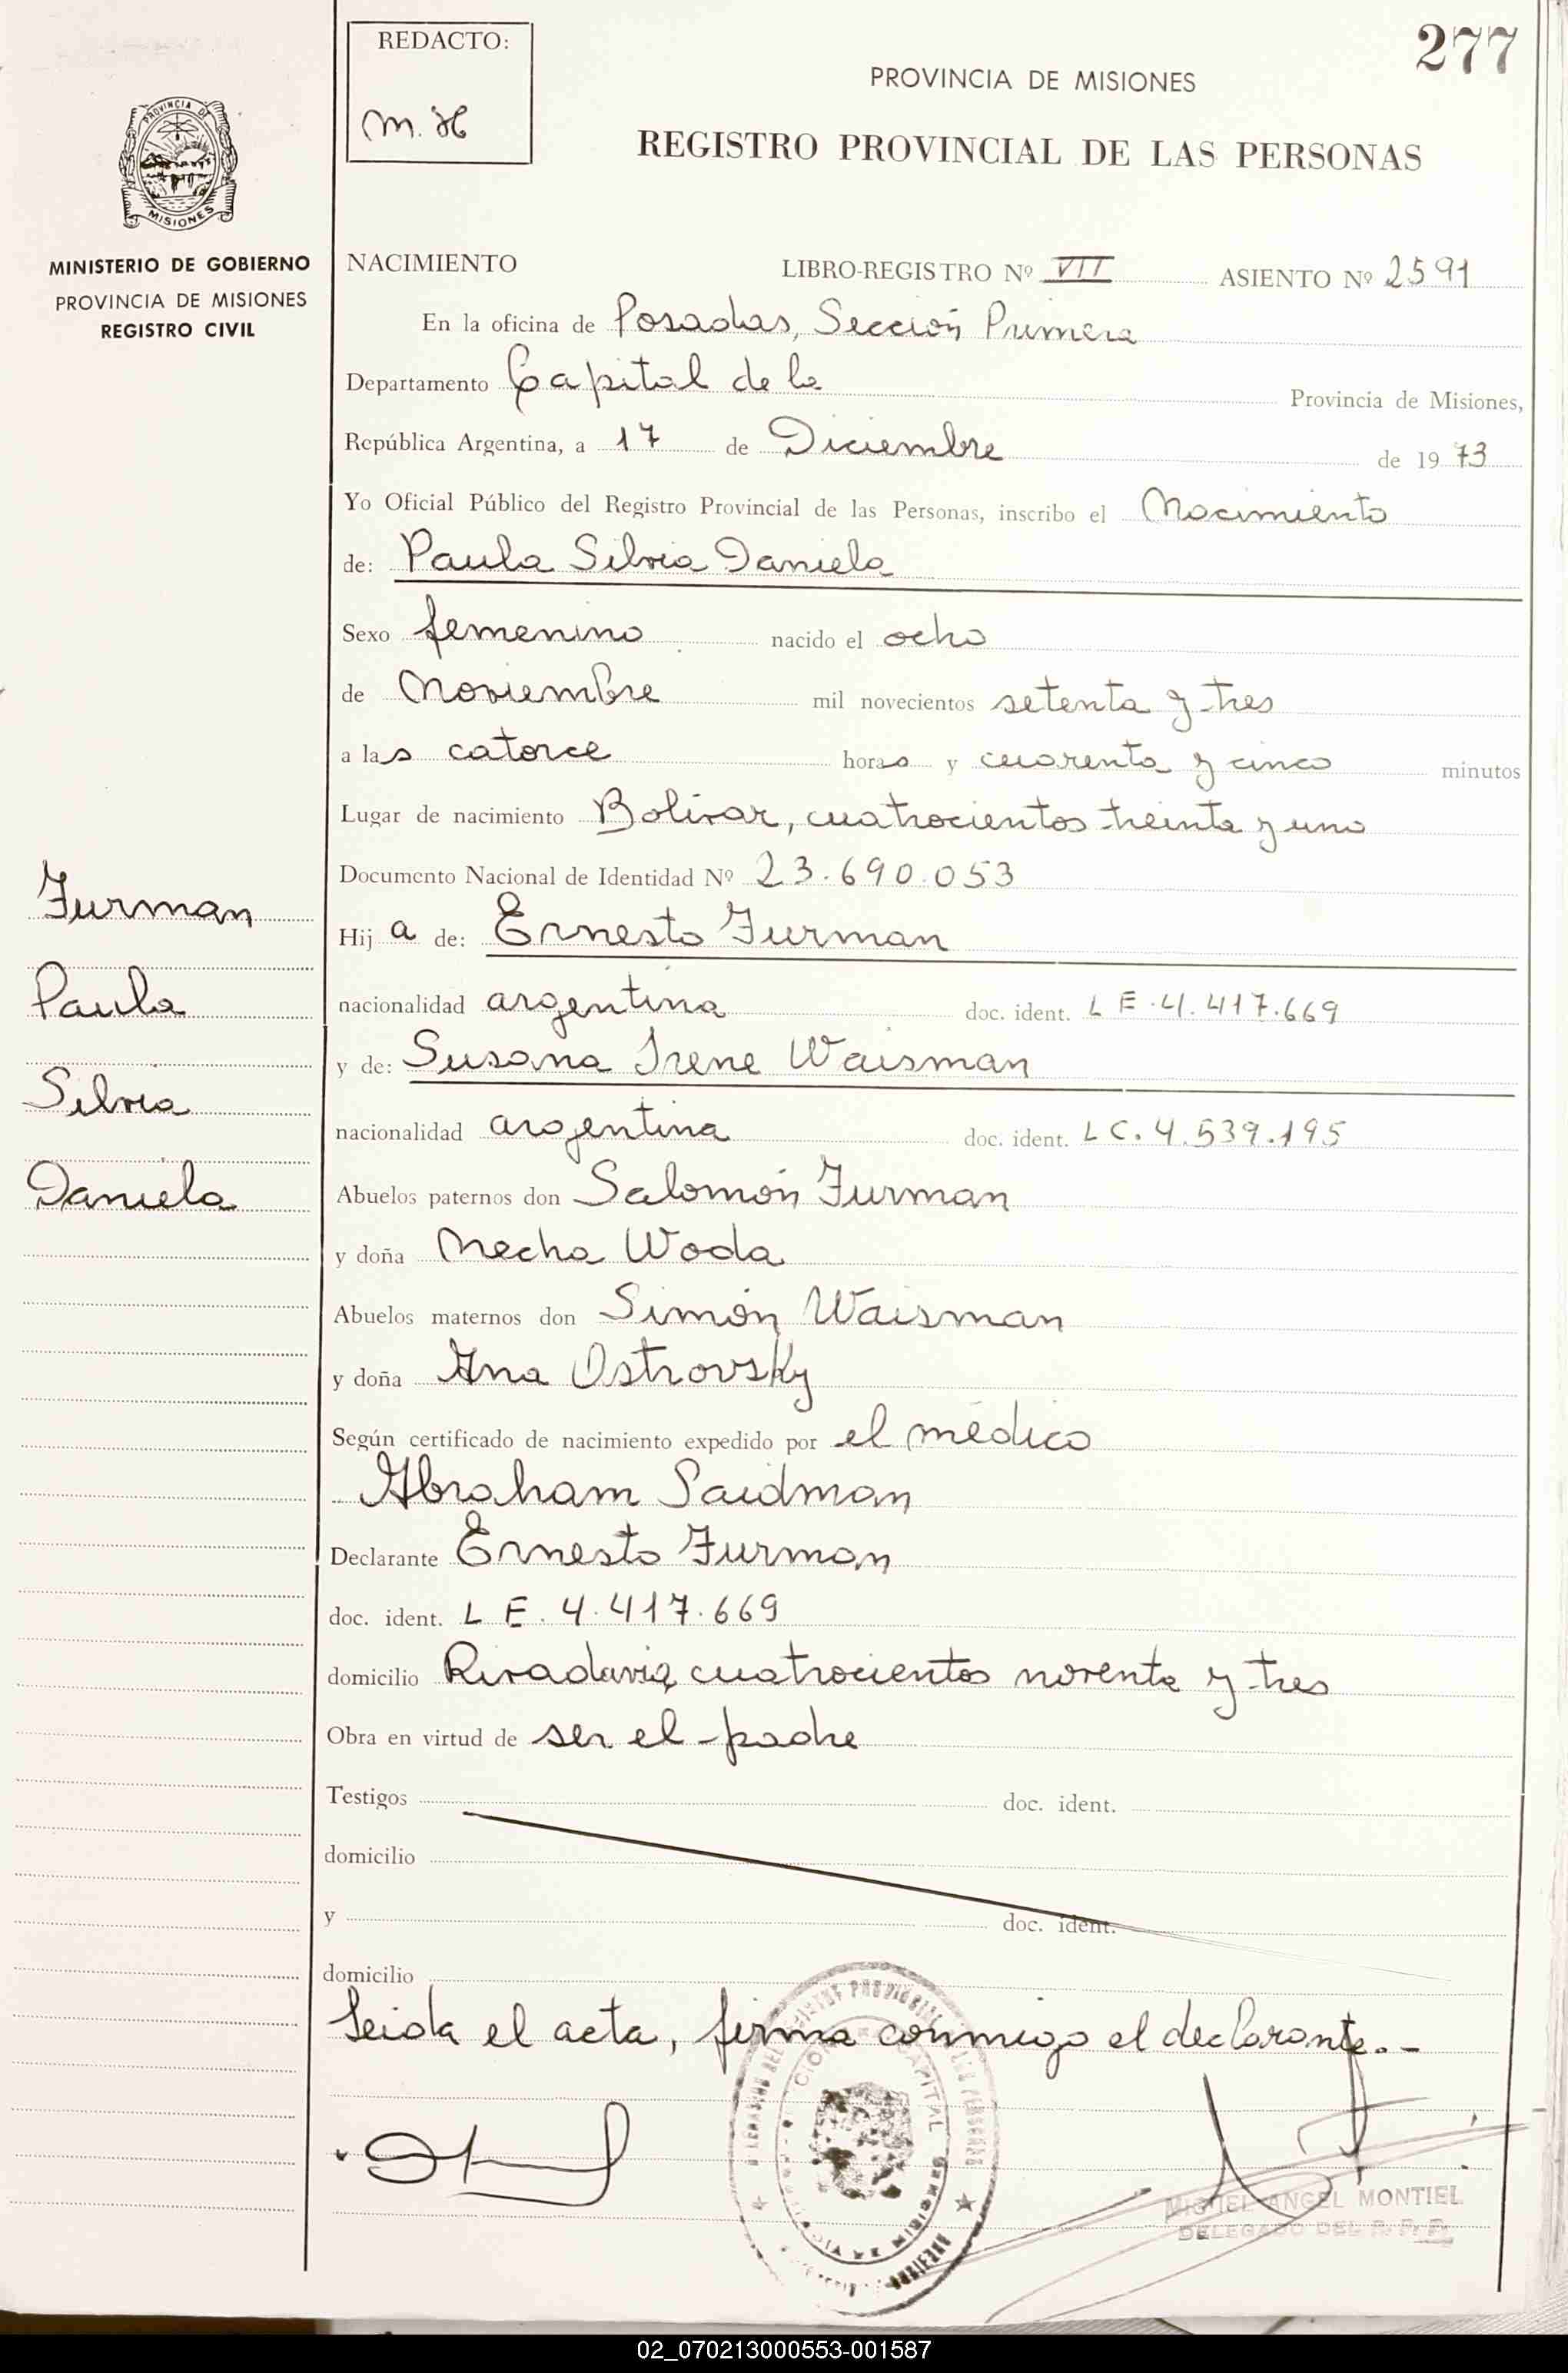 REDACTO:
M. H
277
PROVINCIA DE MISIONES
REGISTRO PROVINCIAL DE LAS PERSONAS
PROVINCIA DE
MISIONES
MINISTERIO DE GOBIERNO
PROVINCIA DE MISIONES
REGISTRO CIVIL
NACIMIENTO LIBRO-REGISTRO Nº VII ASIENTO Nº 2591
En la oficina de Posadas, Sección Primera
Departamento Capital de la Provincia de Misiones,
República Argentina, a 17 de Diciembre de 1973
Yo Oficial Público del Registro Provincial de las Personas, inscribo el Nacimiento
de: Paula Silvia Daniela
Sexo femenino nacido el ocho
de Noviembre mil novecientos setenta y tres
a las catorce horas y cuarenta y cinco minutos
Lugar de nacimiento Bolívar, cuatrocientos treinta y uno
Documento Nacional de Identidad Nº 23.690.053
Furman
Paula
Silvia
Daniela
Hija de: Ernesto Furman
nacionalidad argentina doc. ident. L E. 4.417.669
y de: Susana Irene Waisman
nacionalidad argentina doc. ident. L C. 4.539.195
Abuelos paternos don Salomón Furman
y doña Necha Woda
Abuelos maternos don Simón Waisman
y doña Ana Ostrovsky
Según certificado de nacimiento expedido por el médico
Abraham Saidman
Declarante Ernesto Furman
doc. ident. L E. 4.417.669
domicilio Rivadavia, cuatrocientos noventa y tres
Obra en virtud de ser el padre
Testigos doc. ident.
domicilio
y doc. ident.
domicilio
Leida el acta, firma conmigo el declarante.-
MIGUEL ANGEL MONTIEL
DELEGADO DEL R. P. P.
02_070213000553-001587